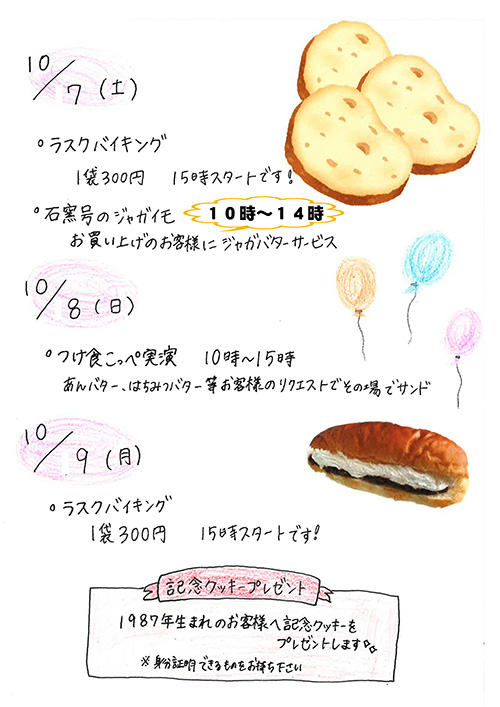 10/7(土)
°ラスクバイキング
1袋300円 15時スタートです!
°石窯号のジャガイモ 10時〜14時
お買い上げのお客様にジャガバターサービス
10/8(日)
°つけ食こっぺ実演 10時〜15時
あんバター、はちみつバター等お客様のリクエストでその場でサンド
10/9(月)
°ラスクバイキング
1袋300円 15時スタートです!
記念クッキープレゼント
1987年生まれのお客様へ記念クッキーを
プレゼントします
※身分証明できるものをお持ち下さい